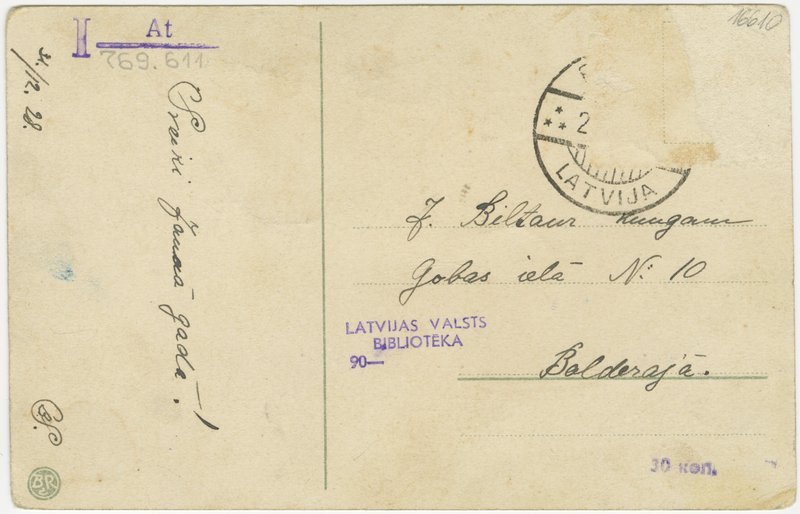 16610
I At
769.611
31./12. 28.
Sveiki Jaunā gadā!
LATVIJA
2
J. Biltaur kungam
Gobas ielā № 10
Bolderajā.
LATVIJAS VALSTS
BIBLIOTĒKA
90—
30 коп.
BR